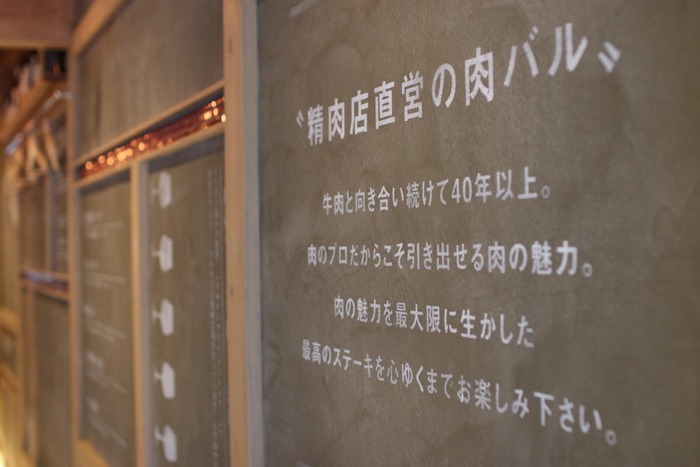 〝精肉店直営の肉バル〟
牛肉と向き合い続けて40年以上。
肉のプロだからこそ引き出せる肉の魅力。
肉の魅力を最大限に生かした
最高のステーキを心ゆくまでお楽しみ下さい。